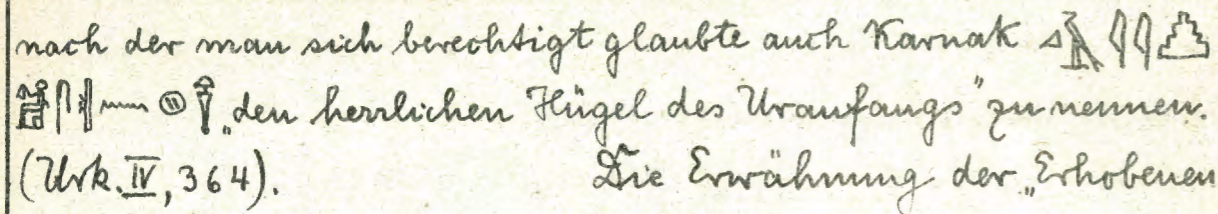 nach der man sich berechtigt glaubte auch Karnak
„den herrlichen Hügel des Uranfangs" zu nennen.
(Urk. IV, 364). Die Erwähnung der „Erhobenen